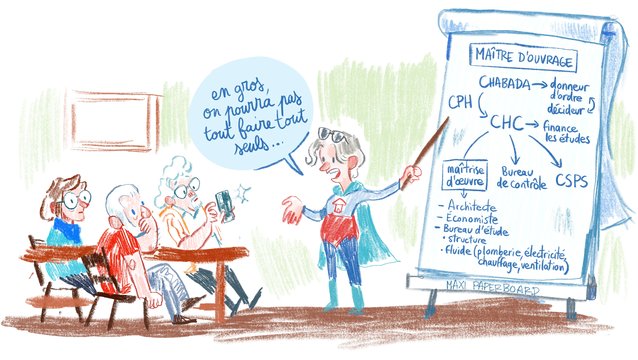 en gros,
on pourra pas
tout faire tout
seuls...
MAÎTRE D'OUVRAGE
CHABADA → donneur
d'ordre
décideur
CPH
CHC → finance
les études
maîtrise
d'œuvre
Bureau
de contrôle
CSPS
- Architecte
- Économiste
- Bureau d'étude
• structure
• Fluide (plomberie, électricité,
chauffage, ventilation)
MAXI PAPERBOARD